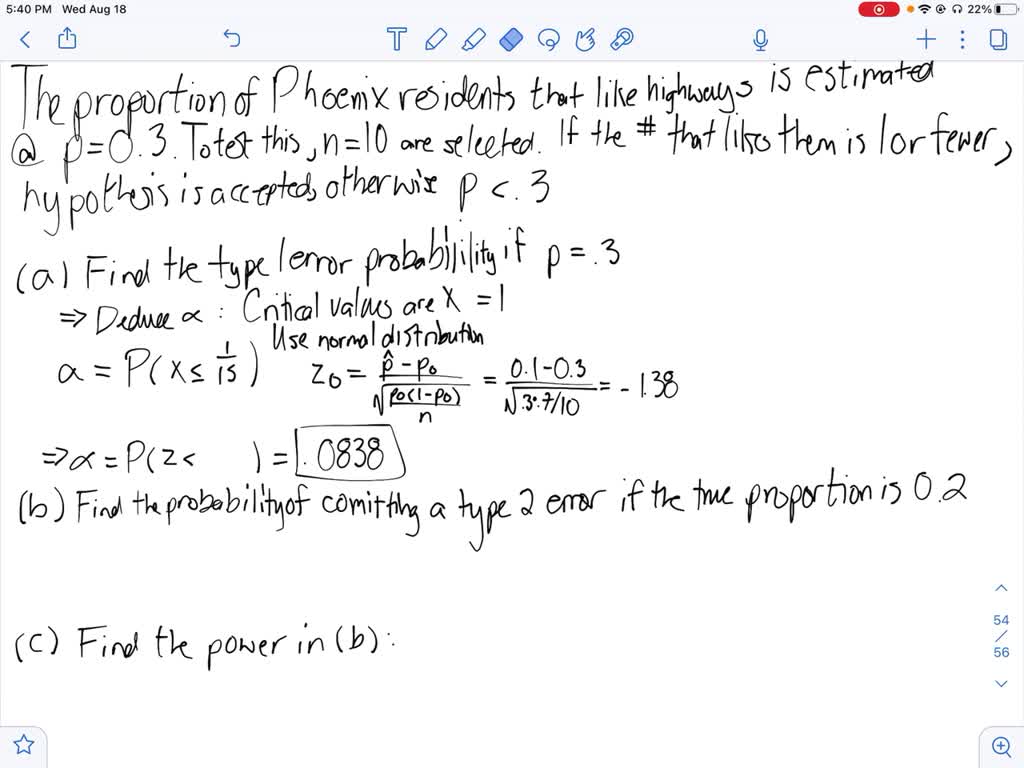 5:40 PM Wed Aug 18
22%
T
The proportion of Phoenix residents that like highways is estimated
@ p=0.3. To test this, n=10 are selected. If the # that likes them is 1 or fewer,
hypothesis is accepted, otherwise p < .3
(a) Find the type 1 error probability if p = .3
⇒ Deduce α : Critical values are X = 1
Use normal distribution
α = P(X ≤ 1/15) z₀ = (p̂ - p₀)/√(p₀(1-p₀)/n) = (0.1-0.3)/√(.3·.7/10) = -1.38
⇒ α = P(z< ) = .0838
(b) Find the probability of comitting a type 2 error if the true proportion is 0.2
54
/
56
(c) Find the power in (b):